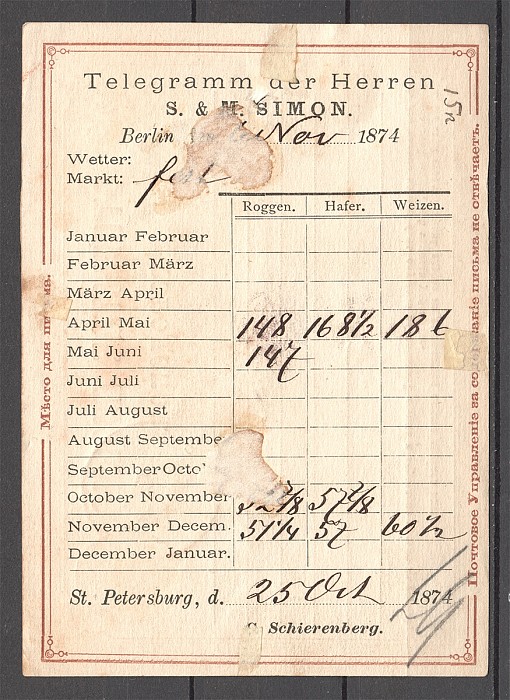 Telegramm der Herren
S. & M. SIMON.
Berlin Nov 1874
Wetter:
Markt: fest
Roggen. Hafer. Weizen.
Januar Februar
Februar März
März April
April Mai 148 168 1/2 186
Mai Juni 147
Juni Juli
Juli August
August Septembe
September Octo
October November 57 2/8
November Decem. 51 1/4 57 60 1/2
December Januar.
St. Petersburg, d. 25 Oct 1874
C. Schierenberg.
15n
Мѣсто для
Почтовое Управленіе за со аніе письма не отвѣчаетъ.